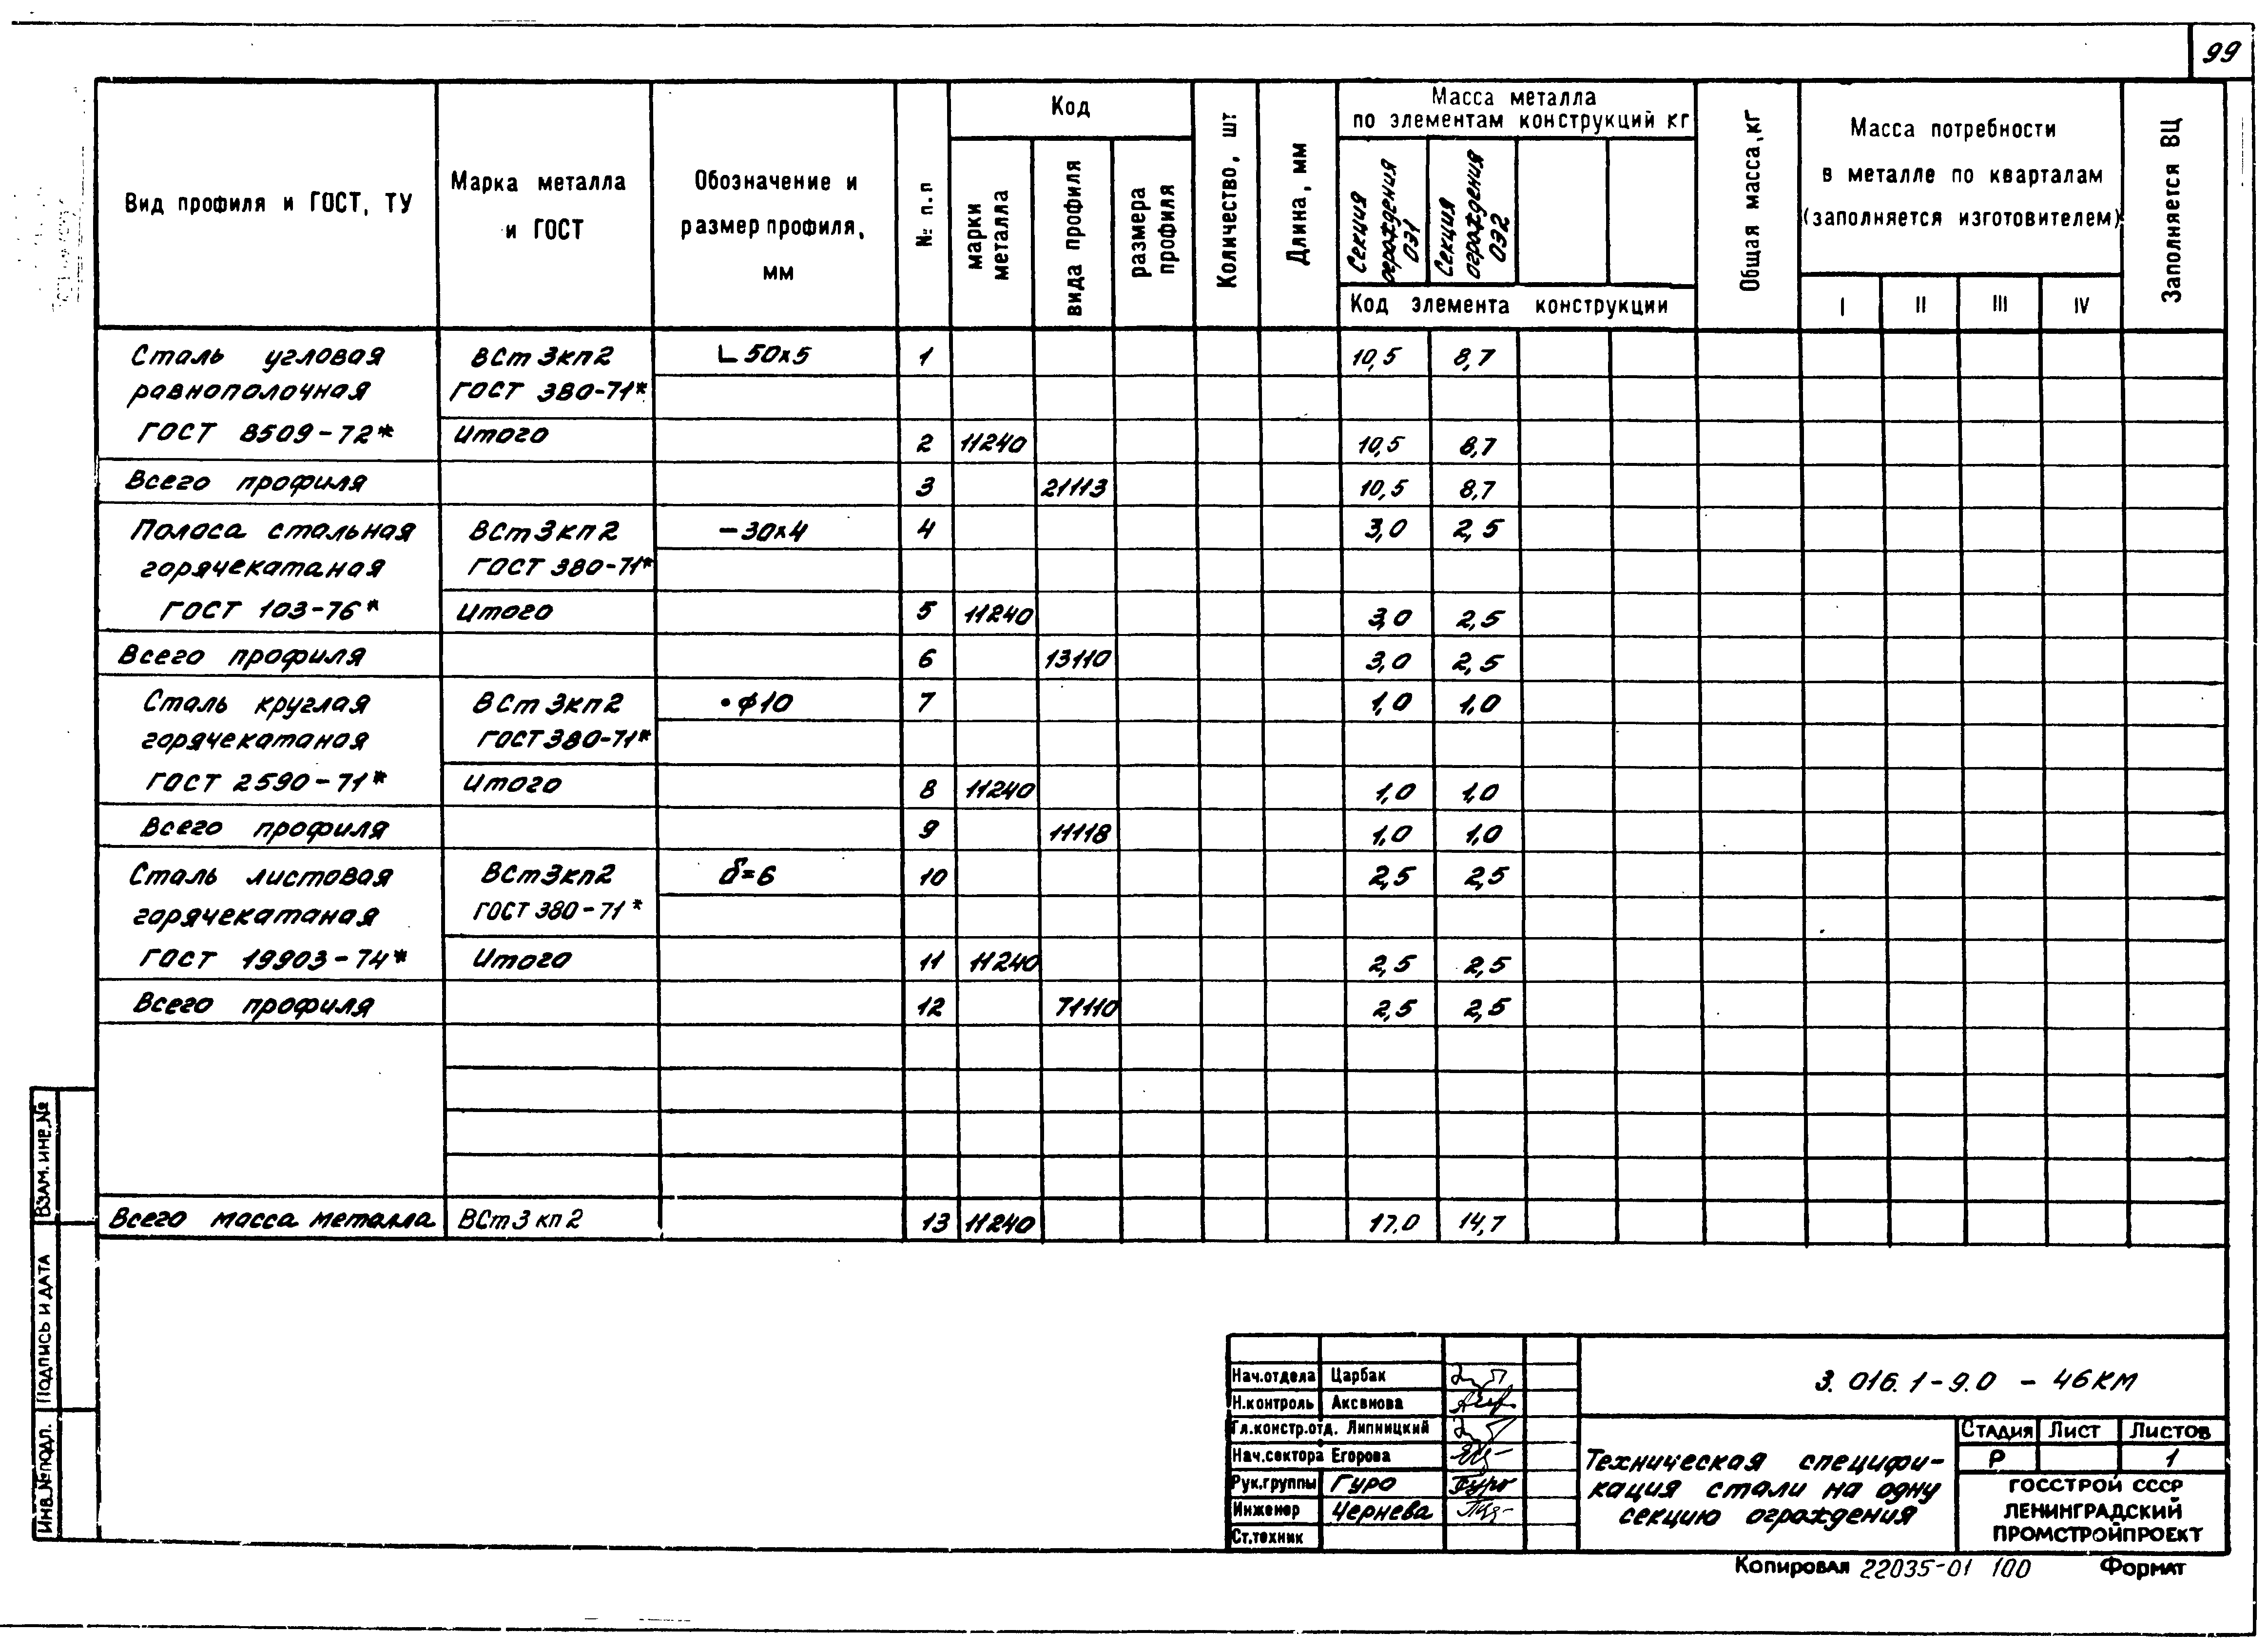 99
Вид профиля и ГОСТ, ТУ
Марка металла
и ГОСТ
Обозначение и
размер профиля,
мм
№ п.п
Код
марки
металла
вида профиля
размера
профиля
Количество, шт
Длина, мм
Масса металла
по элементам конструкций кг
Секция
ограждения
ОЭ1
Секция
ограждения
ОЭ2
Код элемента конструкции
Общая масса, кг
Масса потребности
в металле по кварталам
(заполняется изготовителем)
I II III IV
Заполняется ВЦ
Сталь угловая ВСт3кп2 ∟50х5 1 10,5 8,7
равнополочная ГОСТ 380-71*
ГОСТ 8509-72* Итого 2 11240 10,5 8,7
Всего профиля 3 21113 10,5 8,7
Полоса стальная ВСт3кп2 –30х4 4 3,0 2,5
горячекатаная ГОСТ 380-71*
ГОСТ 103-76* Итого 5 11240 3,0 2,5
Всего профиля 6 13110 3,0 2,5
Сталь круглая ВСт3кп2 •ϕ10 7 1,0 1,0
горячекатаная ГОСТ 380-71*
ГОСТ 2590-71* Итого 8 11240 1,0 1,0
Всего профиля 9 11118 1,0 1,0
Сталь листовая ВСт3кп2 δ=6 10 2,5 2,5
горячекатаная ГОСТ 380-71*
ГОСТ 19903-74* Итого 11 11240 2,5 2,5
Всего профиля 12 71110 2,5 2,5
Всего масса металла ВСт3кп2 13 11240 17,0 14,7
Взам. инв. №
Подпись и дата
Инв. № подл.
Нач.отдела Царбак
Н.контроль Аксенова
Гл.констр.отд. Липницкий
Нач.сектора Егорова
Рук.группы Гуро
Инженер Чернева
Ст.техник
3.016.1-9.0 - 46КМ
Техническая специфи-
кация стали на одну
секцию ограждения
Стадия Лист Листов
Р 1
ГОССТРОЙ СССР
ЛЕНИНГРАДСКИЙ
ПРОМСТРОЙПРОЕКТ
Копировал 22035-01 100 Формат